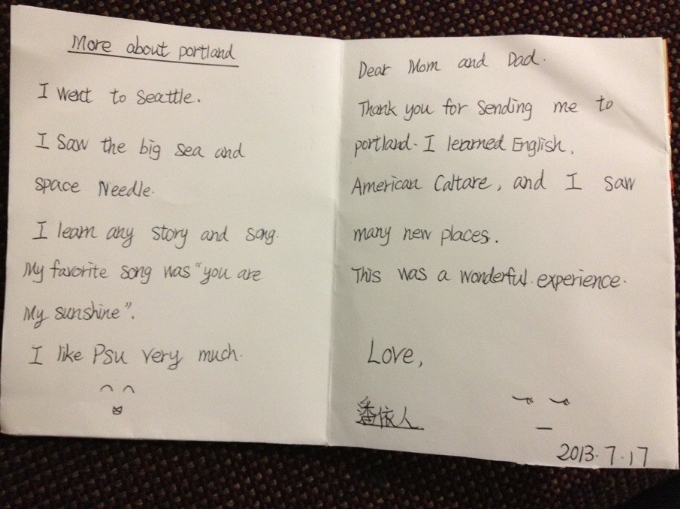 More about portland
I went to Seattle.
I Saw the big Sea and
space Needle.
I learn any story and song.
My favorite song was "you are
My sunshine".
I like Psu very much.
Dear Mom and Dad.
Thank you for Sending me to
portland. I learned English,
American Caltare, and I saw
many new places.
This was a wonderful experience.
Love,
依人
2013.7.17